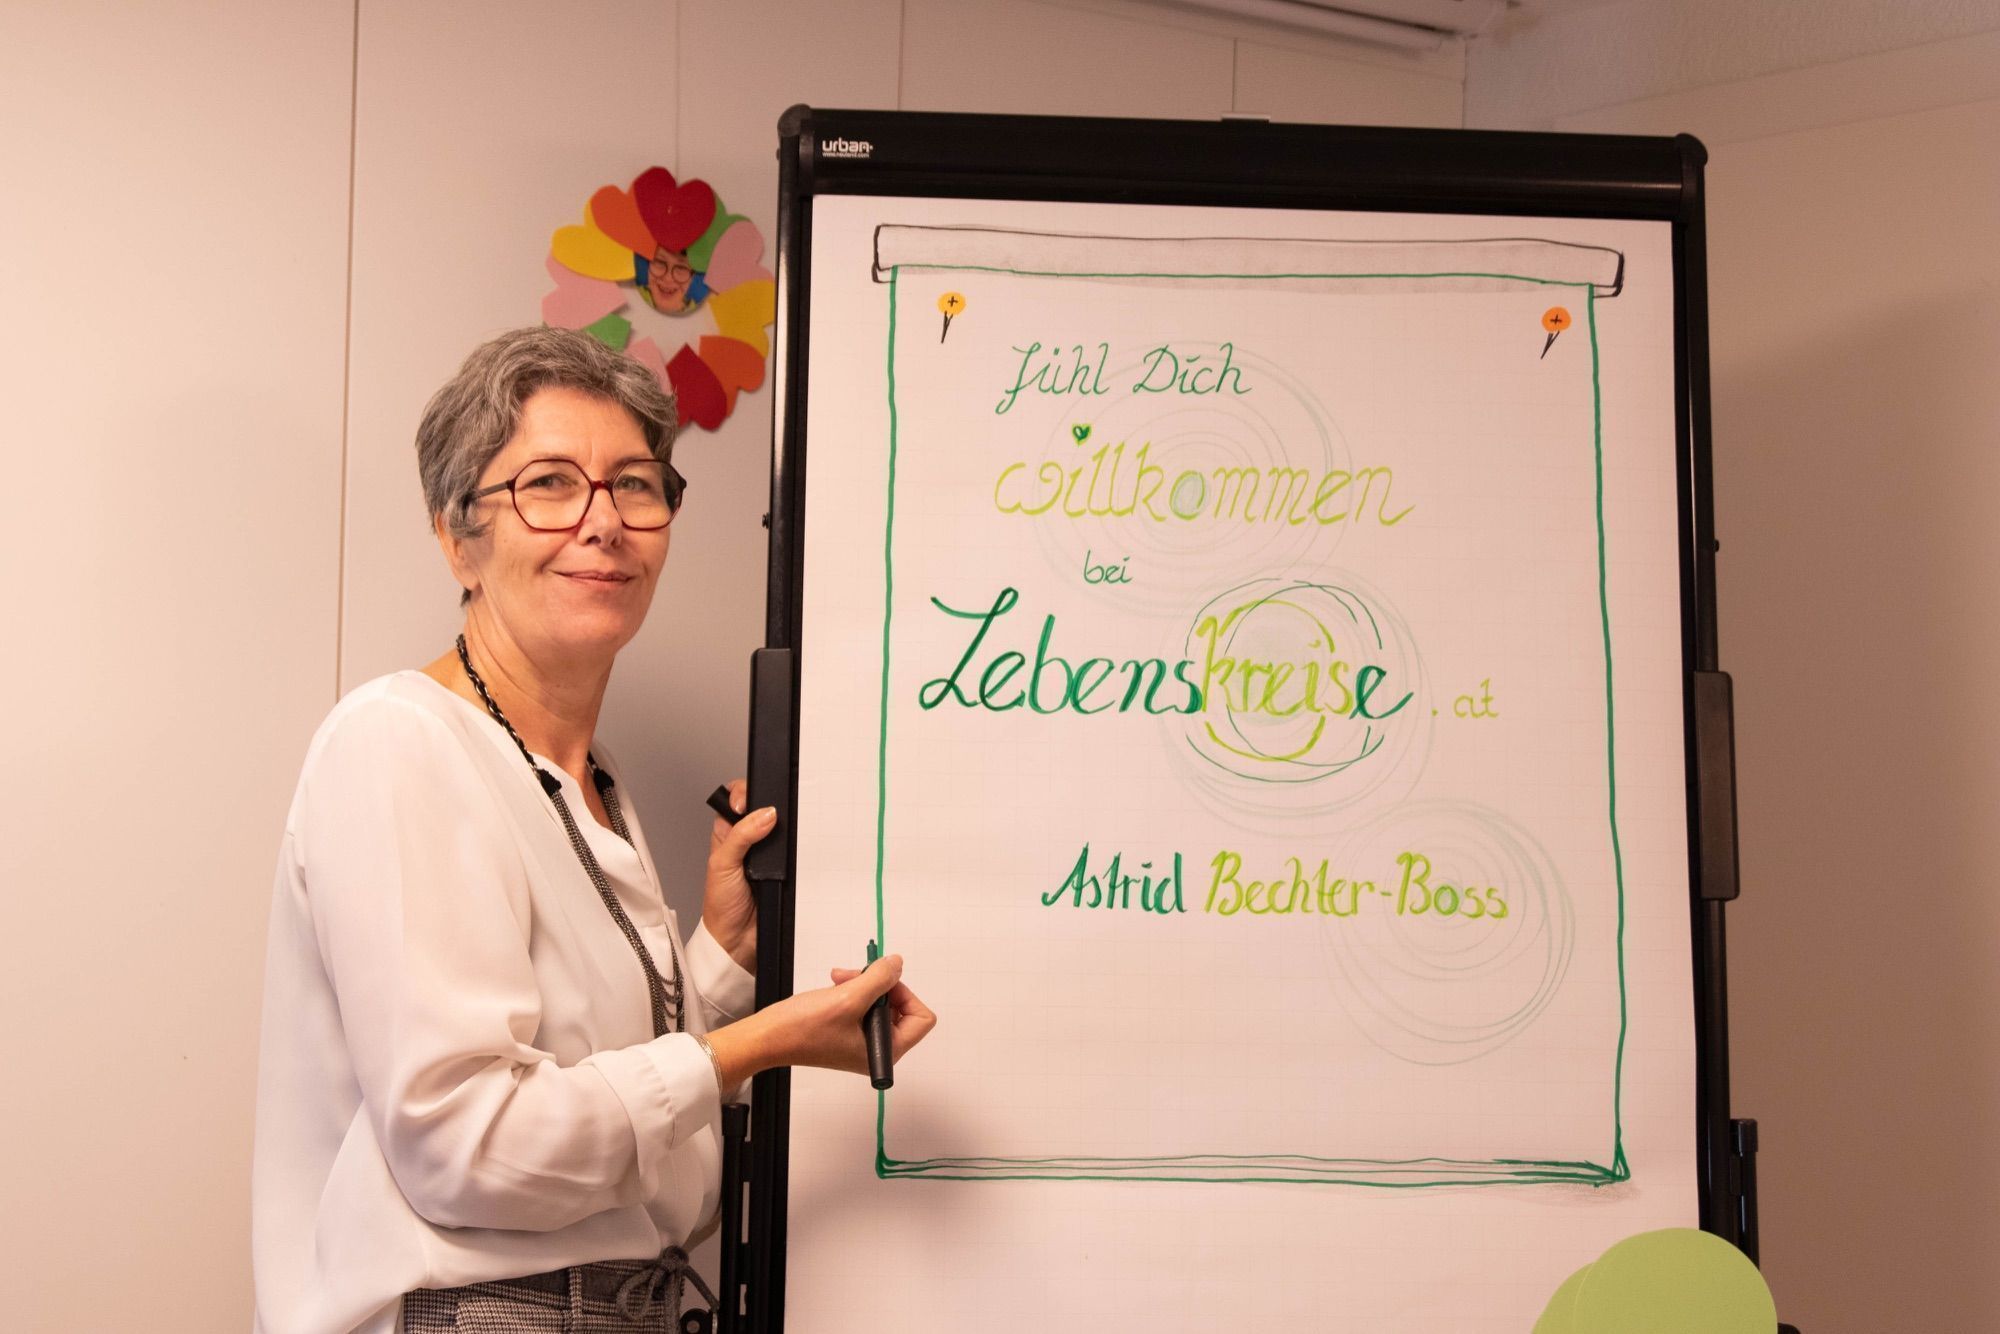 urban
www.neuland.com
Fühl Dich
willkommen
bei
Lebenskreise.at
Astrid Bechter-Boss